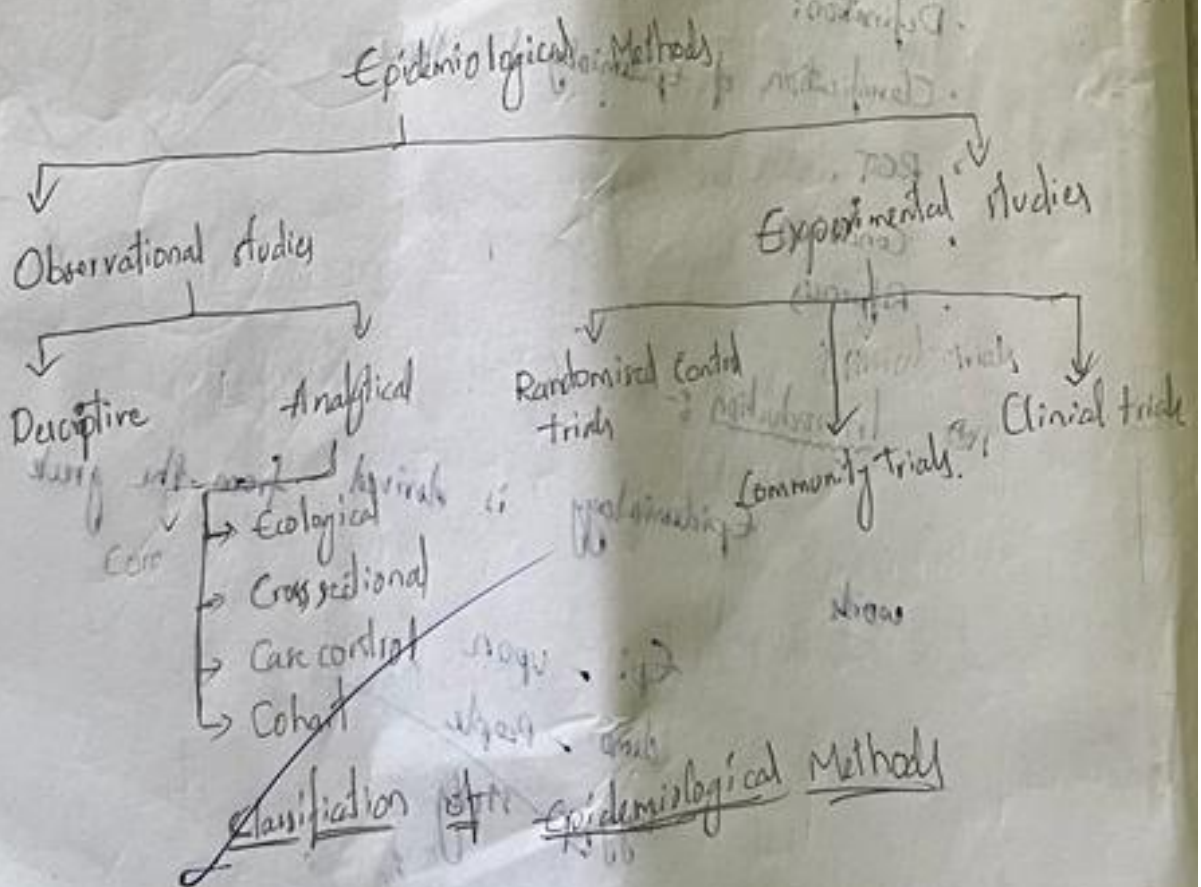 Epidemiological Methods
Observational studies
Experimental studies
Descriptive
Analytical
Randomised Control
trials
Community trials
Clinial trials
Ecological
Cross sectional
Case control
Cohort
Classification of Epidemiological Methods